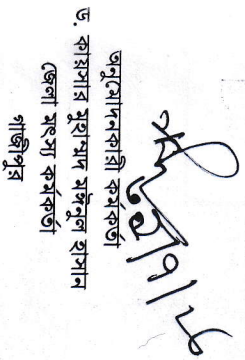 অনুমোদনকারী কর্মকর্তা
ড. কায়সার মুহাম্মদ মঈনুল হাসান
জেলা মৎস্য কর্মকর্তা
গাজীপুর